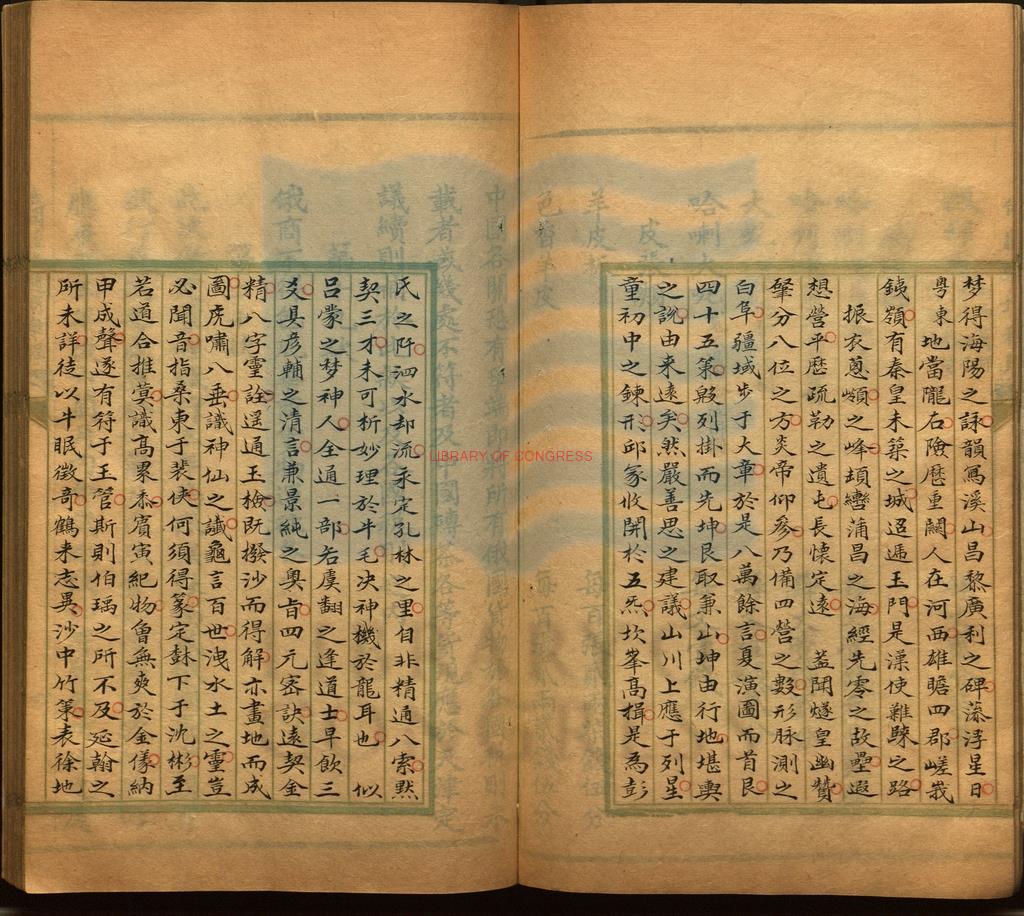 梦得海陽之詠韻寫溪山昌黎廣利之碑藻浮星日
粵東地當隴右險歷重關人在河西雄瞻四郡嵯峩
鐵嶺有秦皇未築之城迢遞玉門是漢使難騄之路
振衣蔥嶺之峰頊巒蒲昌之海經先零之故壘遐
想營平歷疏勒之遺屯長懷定遠 蓋聞燧皇幽贊
肇分八位之方炎帝仰參乃備四營之數形脉測之
白阜疆域步于大章於是八萬餘言夏演圖而首艮
四十五策殷列掛而先坤艮取兼山坤由行地堪輿
之說由来遠矣然嚴善思之建議山川上應于列星
童初中之鍊形邱冢收開於五炁坎峯高揖是為彭
氏之阡泗水却流汞定孔林之里自非精通八索黙
契三才未可析妙理於牛毛决神機於龍耳也 似
呂蒙之梦神人全通一部若虞翻之逢道士早飲三
爻具彥輔之清言兼景純之奧旨四元宻訣遠契金
精八字靈詮遥通玉檢既撥沙而得解亦畫地而成
圖虎嘯八垂識神仙之讖龜言百世洩水土之靈豈
必聞音指桑東于裴俠何須得篆定麩下于沈彬至
若道合推蓂識高累黍賓寅紀物魯無爽於金儀納
甲成聲遂有符于玉管斯則伯瑀之所不及延翰之
所未詳徒以牛眠徵奇鶴来志異沙中竹策表徐地
LIBRARY OF CONGRESS